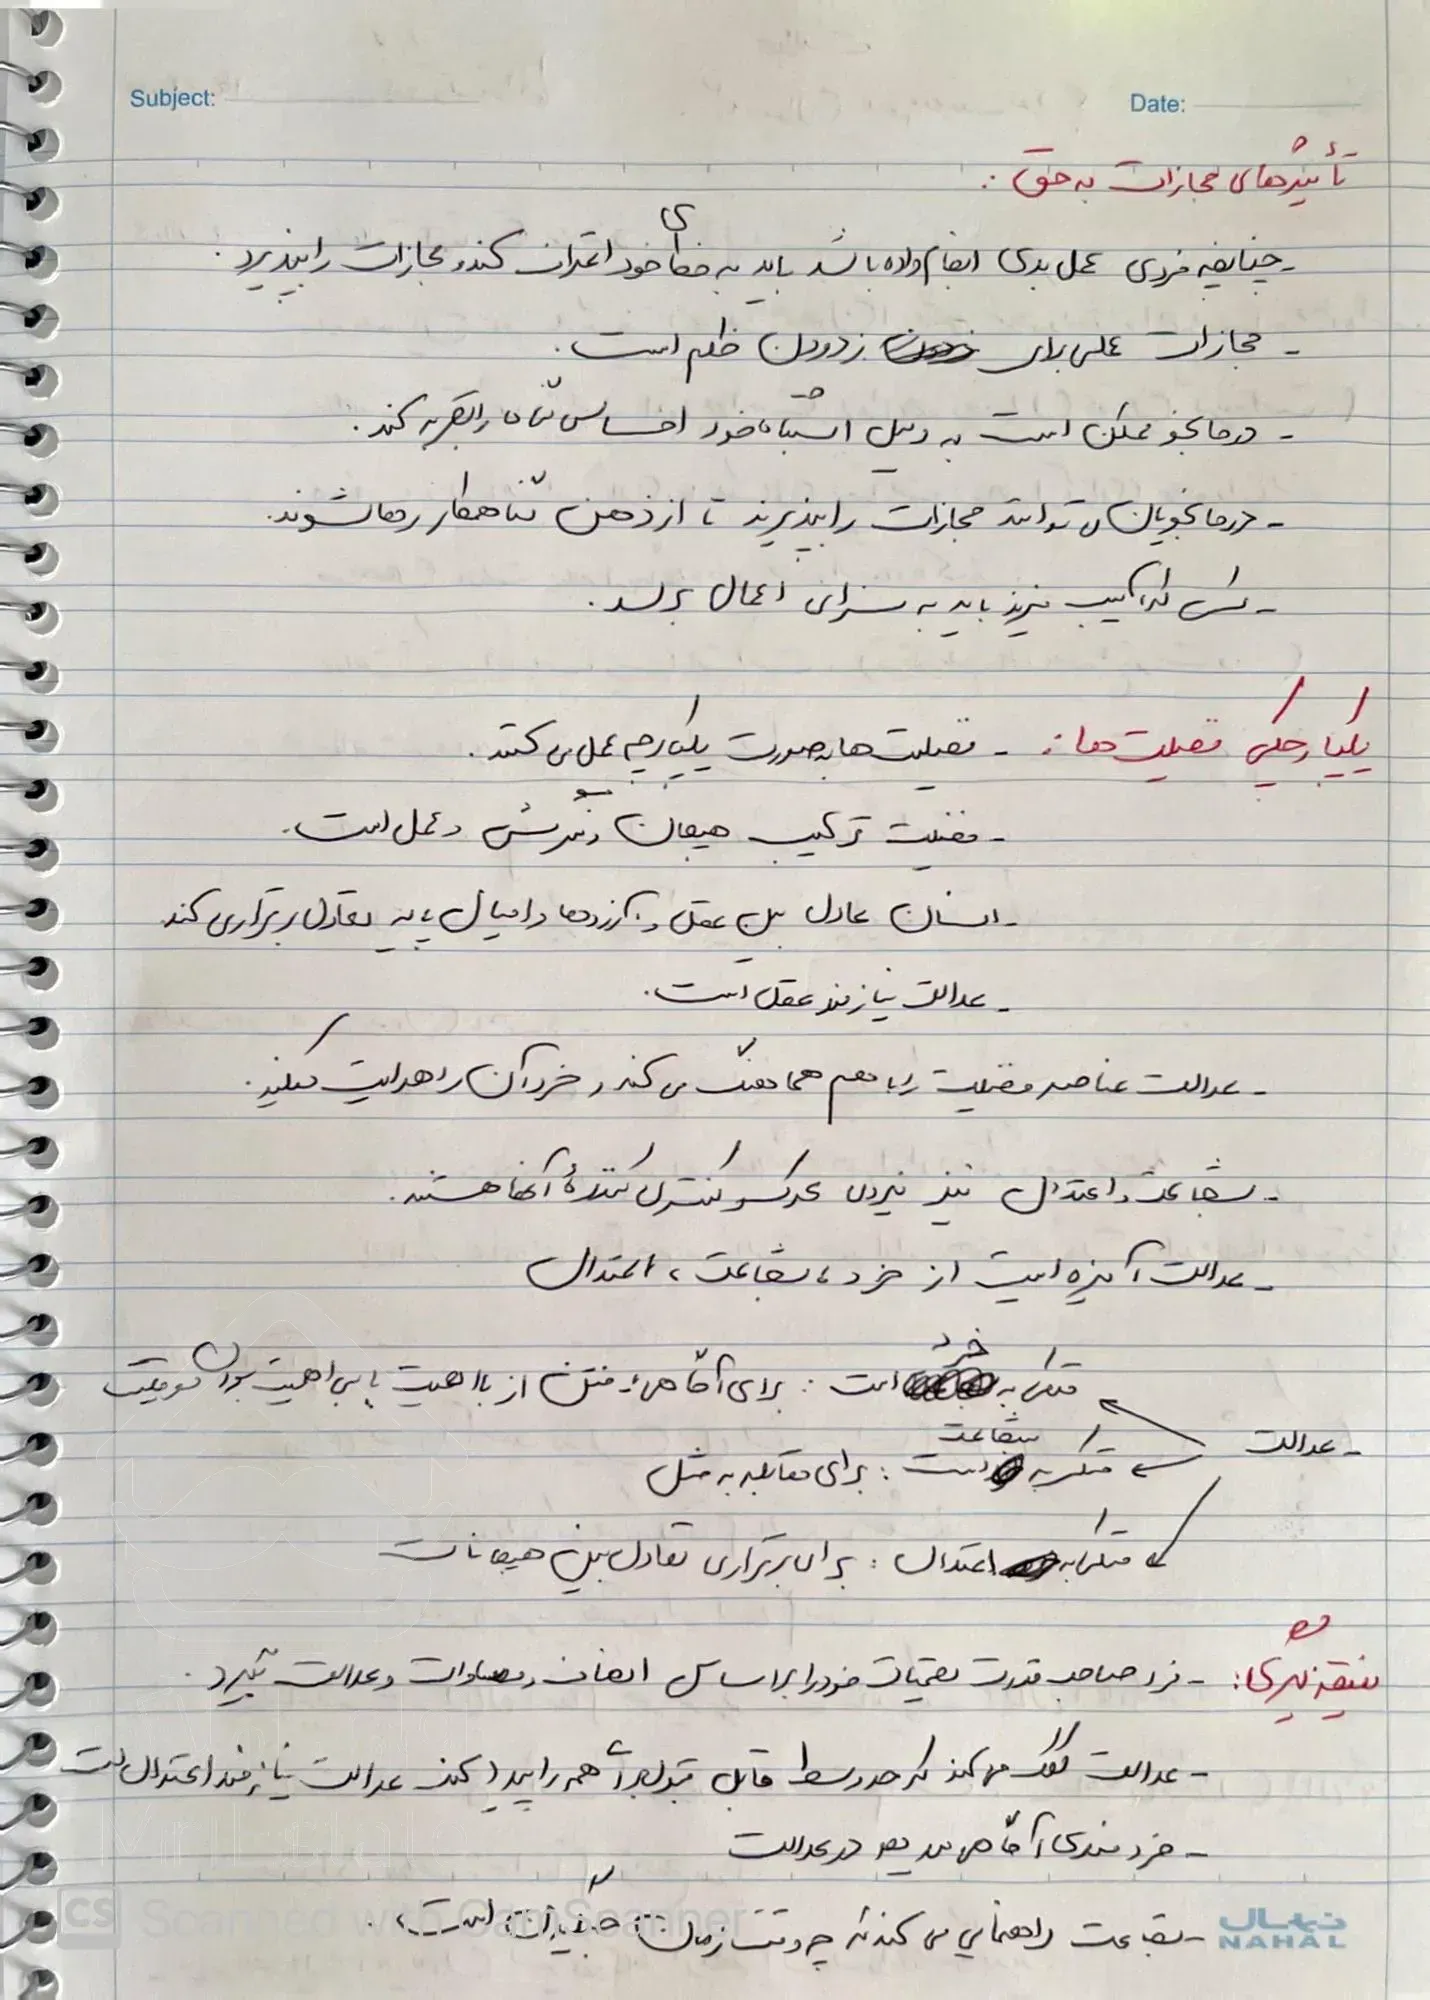 Subject:
Date:
تأثیرهای مجازات به حق:
- چنانچه فردی عمل بدی انجام داده باشد باید به خطای خود اعتراف کند و مجازات را بپذیرد.
- مجازات عملی برای زدودن ظلم است.
- درمانجو ممکن است به دلیل اشتباه خود احساس گناه را تجربه کند.
- درمانجویان می توانند مجازات را بپذیرند تا از ذهن گناهکار رها شوند.
- کسی که آسیب میزند باید به سزای اعمال برسد.
یکپارچگی فضیلت ها: - فضیلت ها به صورت یکپارچه عمل می کنند.
- فضیلت ترکیب هیجان و نگرش و عمل است.
- انسان عادل بین عقل و آرزوها و امیال پایه تعادل برقراری کند
- عدالت نیازمند عقل است.
- عدالت عناصر فضیلت را با هم هماهنگ می کند و خرد آن را هدایت میکند.
- شجاعت و اعتدال نیز نیروی محرک و کنترل کنندهٔ آنها هستند.
- عدالت آمیزه ایست از خرد، شجاعت، اعتدال
متکی به خرد است: برای آگاهی یافتن از با اهمیت یا بی اهمیت بودن موقعیت
- عدالت
متکی به شجاعت است: برای مقابله به مثل
متکی به اعتدال: برای برقراری تعادل بین هیجانات
نتیجه گیری: - فرد صاحب قدرت تصمیمات خود را بر اساس انصاف و مساوات و عدالت بگیرد.
- عدالت کمک می کند که حد وسط قابل قبول برای همه را پیدا کند عدالت نیازمند اعتدال است
- خردمندی آگاهی می دهد در عدالت
- شجاعت راهنمایی می کند که چه وقت زمان است.
نهال
NAHAL
CS Scanned with CamScanner